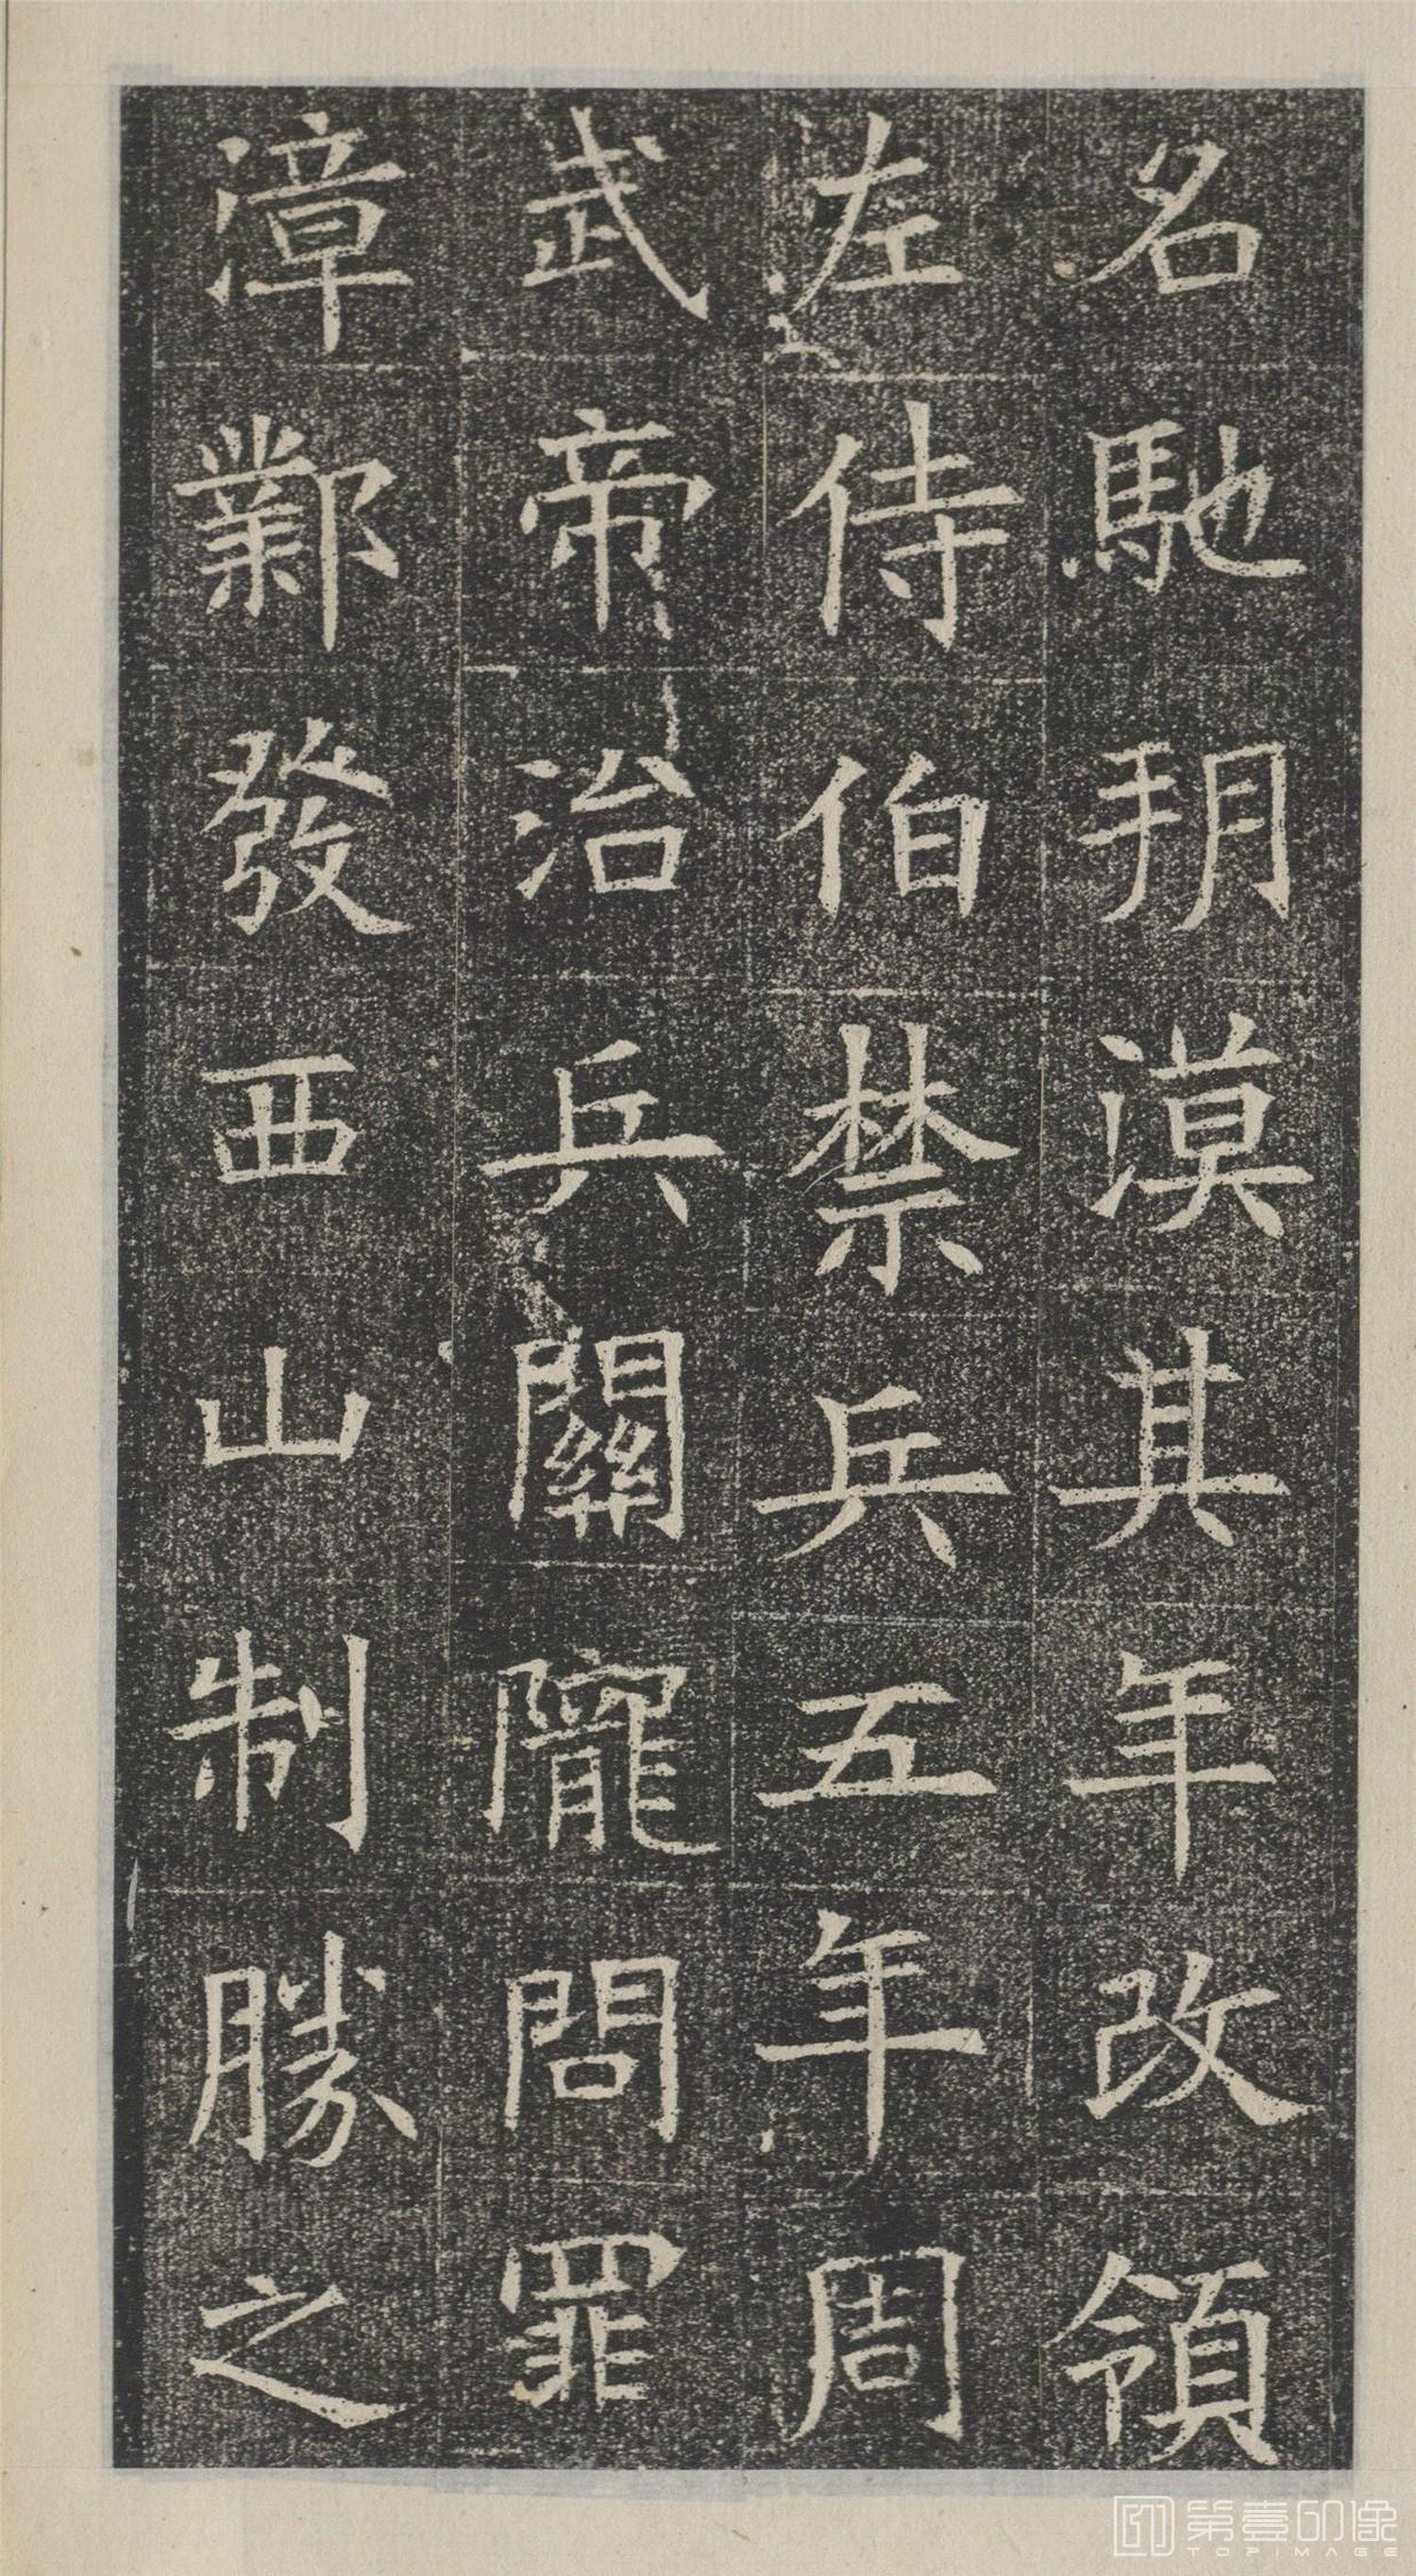 名馳玥漠其年改領
左侍伯禁兵五年周
武帝治兵關隴問罪
漳鄴發西山制勝之
第壹印像
TOPIMAGE